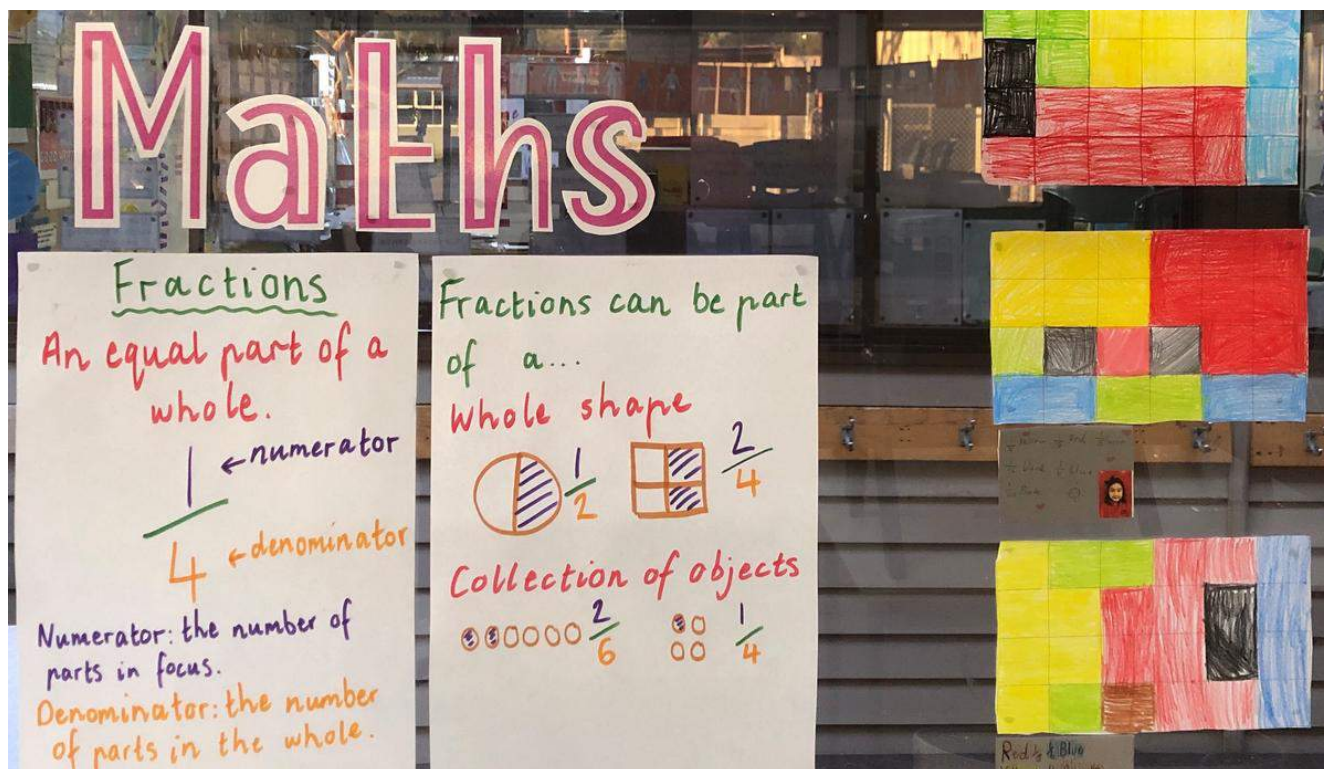 Maths
Fractions
An equal part of a
whole.
1 ←numerator
4 ←denominator
Numerator: the number of
parts in focus.
Denominator: the number
of parts in the whole.
Fractions can be part
of a...
Whole shape
1/2 2/4
Collection of objects
2/6 1/4
Red 1/3 Blue